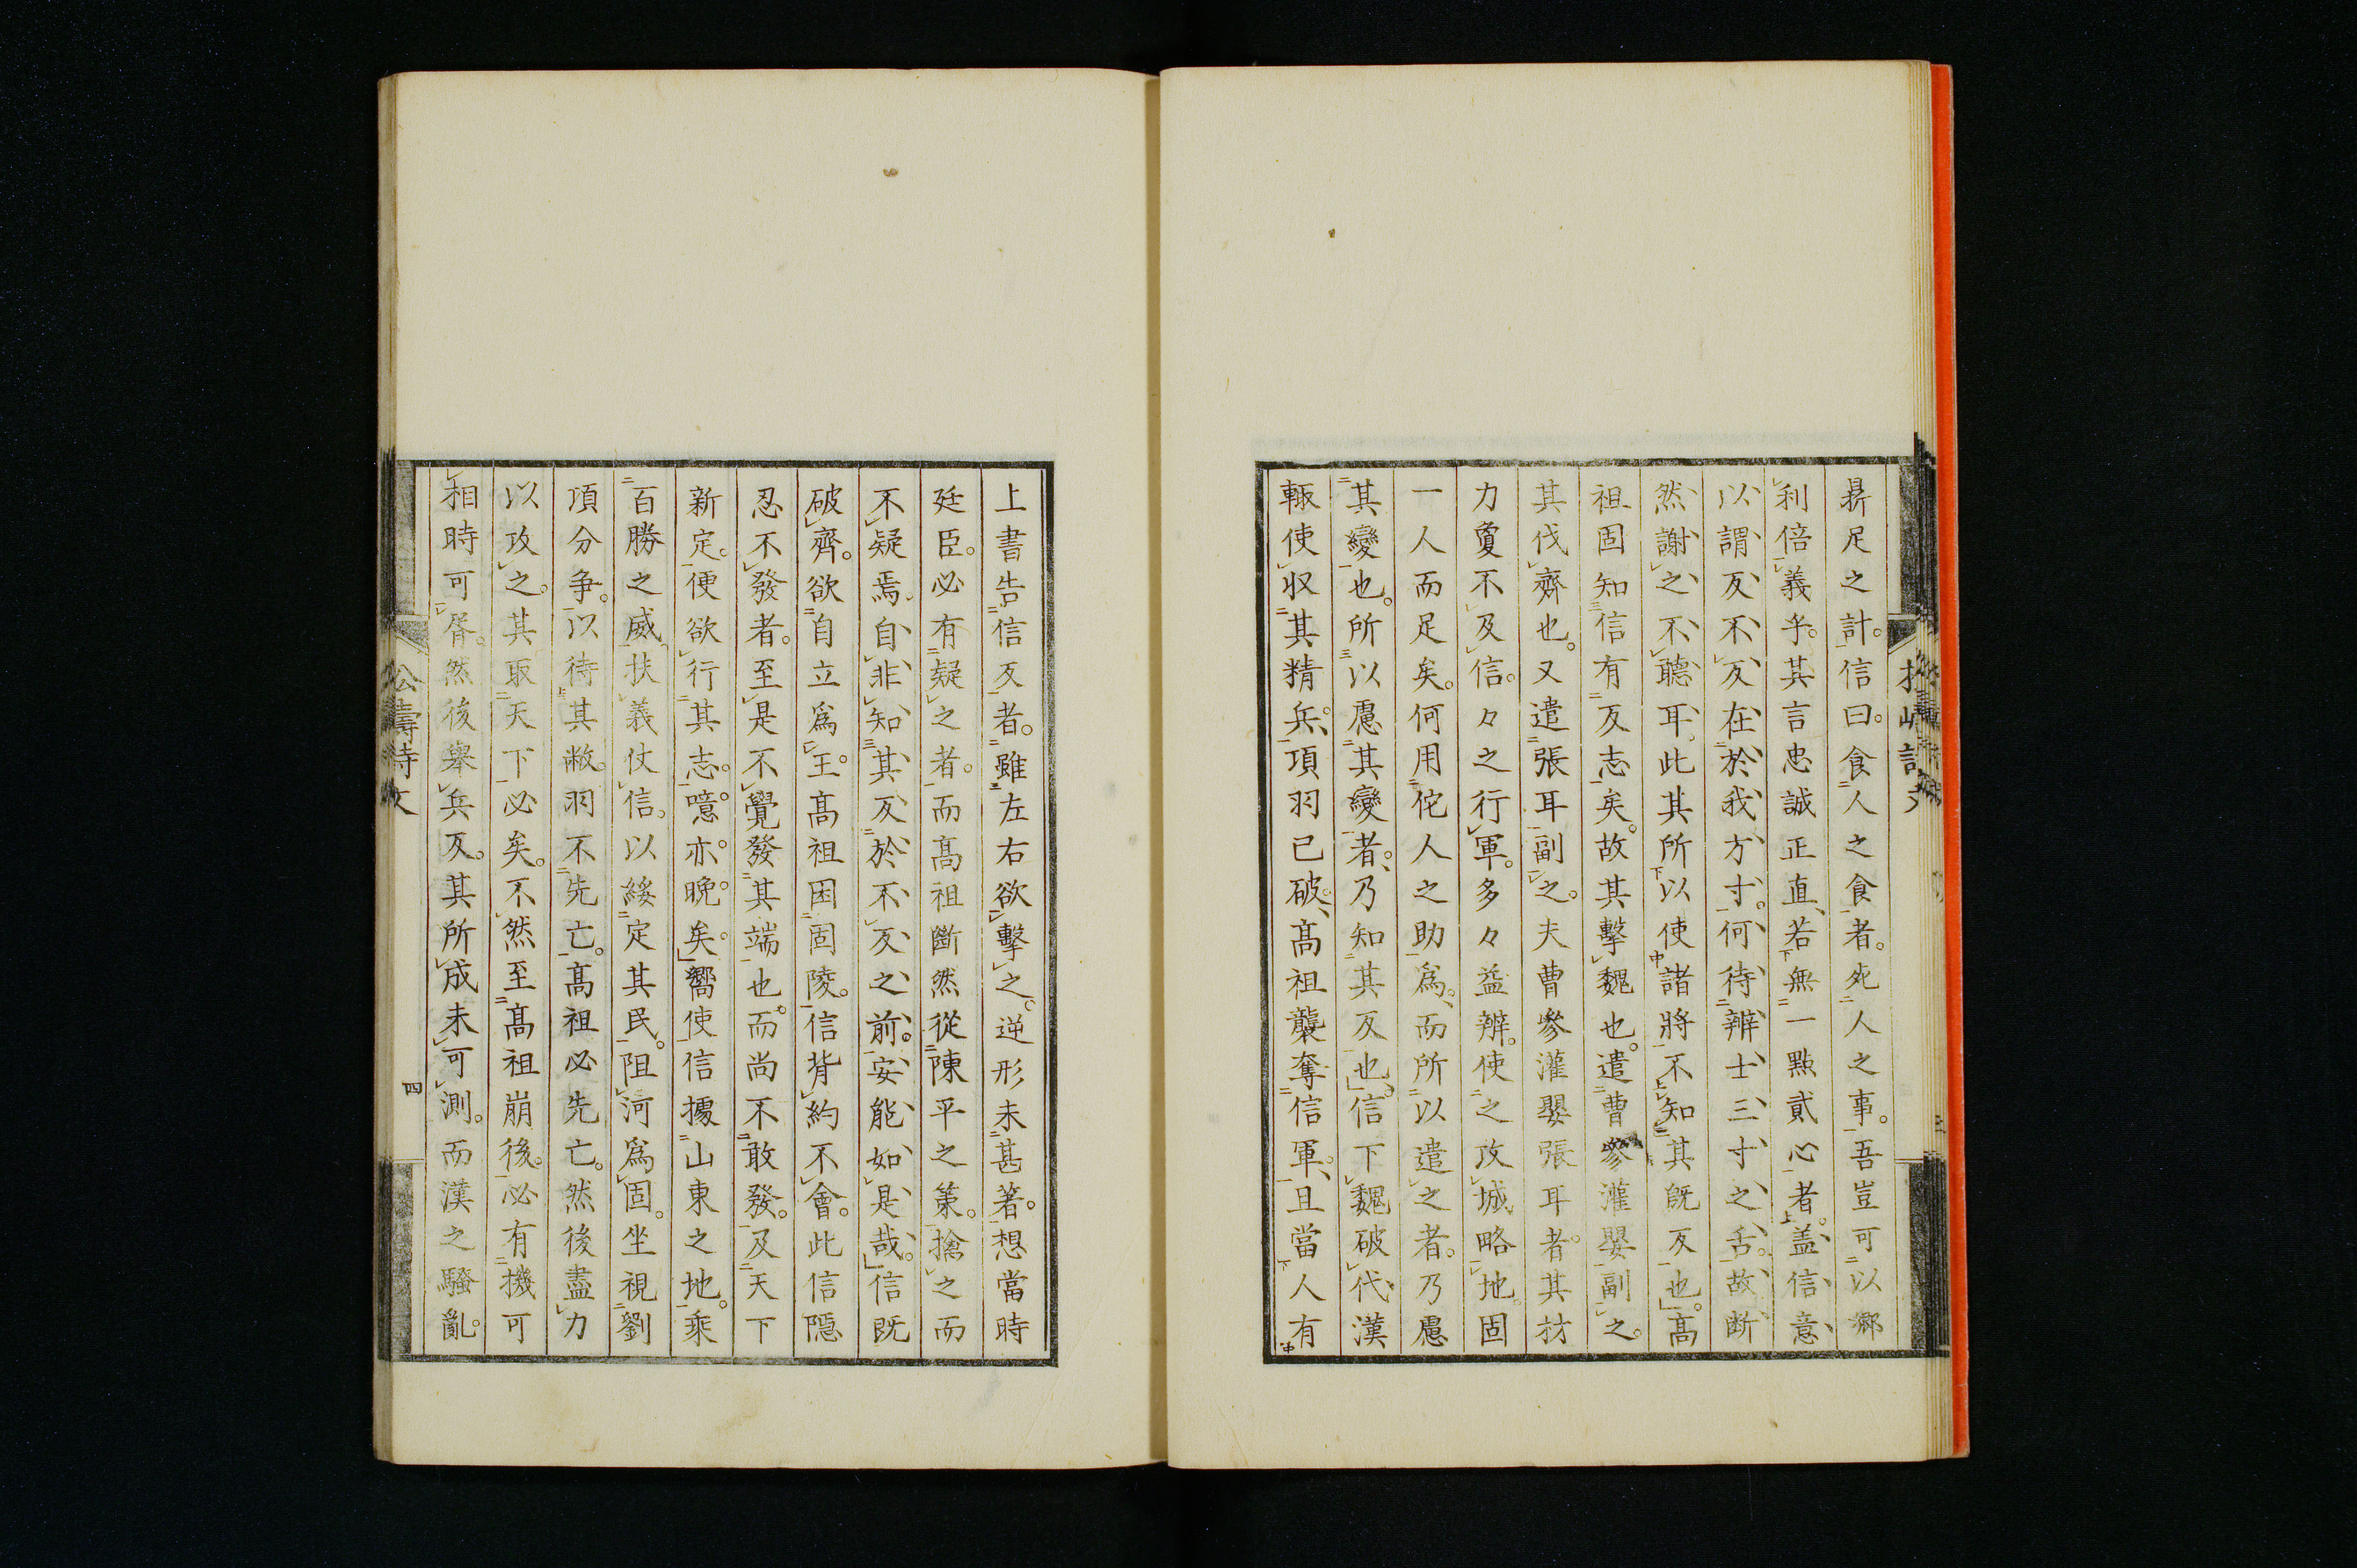 鼎足之計。信曰。食人之食者。死人之事。吾豈可以郷
利倍義乎。其言忠誠正直、若無一點貳心者。盖信意
以謂反不反在於我方寸。何待辨士三寸之舌。故断
然謝之不聽耳。此其所以使諸將不知其既反也。髙
祖固知信有反志矣。故其擊魏也。遣曹參灌嬰副之。
其伐齊也。又遣張耳副之。夫曹參灌嬰張耳者。其材
力敻不及信。信々之行軍。多々益辨。使之攻城略地。固
一人而足矣。何用佗人之助爲、而所以遣之者。乃慮
其變也。所以慮其變者、乃知其反也。信下魏破代漢
輙使収其精兵、項羽已破、髙祖襲奪信軍、且當人有
上書告信反者。雖左右欲擊之。逆形未甚著。想當時
廷臣。必有疑之者。而髙祖斷然從陳平之策。擒之而
不疑焉。自非知其反於不反之前。安能如是哉。信既
破齊。欲自立爲王。髙祖困固陵。信背約不會。此信隱
忍不發者。至是不覺發其端也。而尚不敢發。及天下
新定。便欲行其志。噫。亦。晩。矣。嚮使信據山東之地。乘
百勝之威、扶義仗信。以綏定其民。阻河爲固。坐視劉
項分争。以待其敝。羽不先亡。髙祖必先亡。然後盡力
以攻之。其取天下必矣。不然至髙祖崩後。必有機可
相時可胥。然後舉兵反。其所成未可測。而漢之騷亂。
四